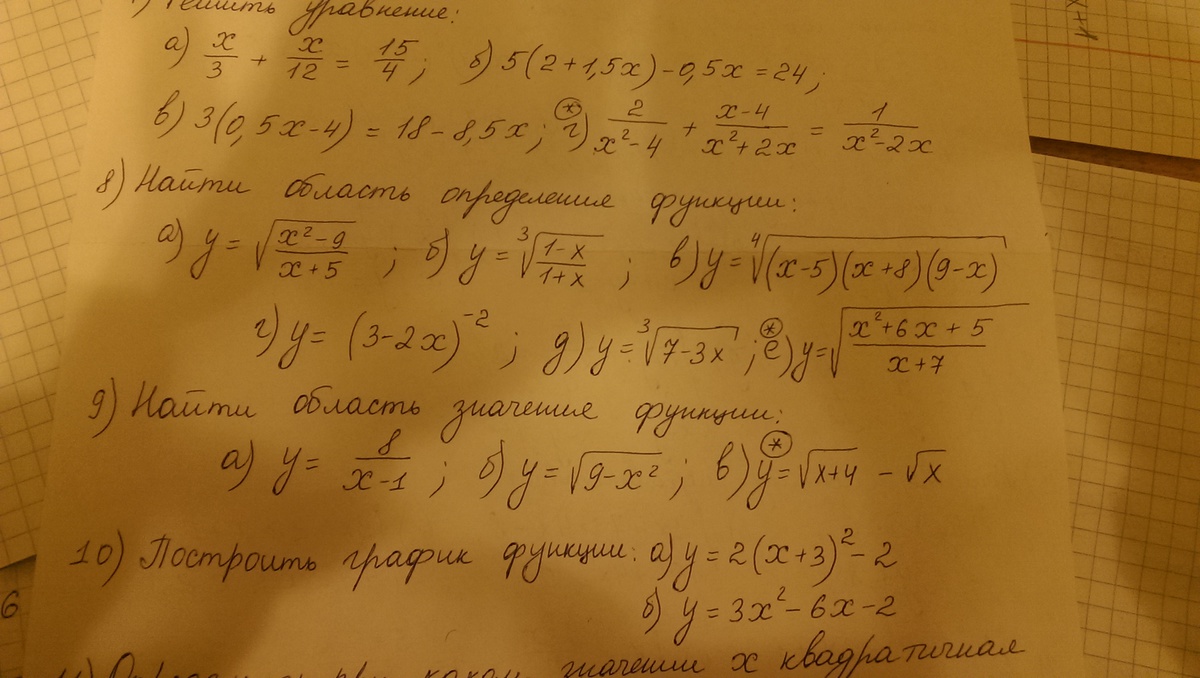 7) Решить уравнение:
а) x/3 + x/12 = 15/4; б) 5(2+1,5x)-0,5x=24;
в) 3(0,5x-4) = 18-8,5x; (*) г) 2/(x²-4) + (x-4)/(x²+2x) = 1/(x²-2x)
8) Найти область определения функции:
а) y = √((x²-9)/(x+5)); б) y = ³√((1-x)/(1+x)); в) y = ⁴√((x-5)(x+8)(9-x))
г) y = (3-2x)⁻²; д) y = ³√(7-3x); (*) е) y = √((x²+6x+5)/(x+7))
9) Найти область значения функции:
а) y = 8/(x-1); б) y = √(9-x²); (*) в) y = √(x+4) - √x
10) Построить график функции: а) y = 2(x+3)²-2
б) y = 3x²-6x-2
значении x квадратичная
6